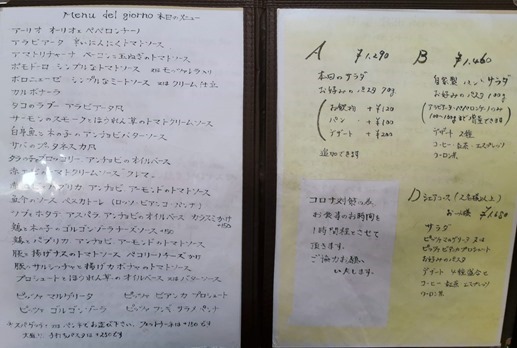 Menu del giorno 本日のメニュー
アーリオ オーリオ ペペロンチーノ
アラビアータ 辛いにんにくトマトソース
アマトリチャーナ ベーコンと玉ねぎのトマトソース
ポモドーロ シンプルなトマトソース 又は
ボロニェーゼ シンプルなミートソース 又はクリーム仕立
カルボナーラ
タコのラグー アラビアータ風
サーモンのスモークとほうれん草のトマトクリームソース
白身魚と木の子のアンチョビバターソース
サバの 風
アンチョビのオイルベース
トマトソース
パプリカ アンチョビ アーモンドのトマトソース
魚介のソース ペスカトーレ (ロッソ・ビアンコ・パンナ)
ツブとホタテ アスパラ アンチョビのオイルベース カラスミかけ +150
鶏と木の子・ゴルゴンゾーラチーズソース +150
鶏とパプリカ アンチョビ・アーモンドのトマトソース
豚と揚げナスのトマトソース ペコリーノチーズかけ
豚・サルシッチャと揚げカボチャのトマトソース
プロシュートとほうれん草のオイルベース 又はバターソース
ピッツァ マルゲリータ ピッツァ ビアンカ プロシュート
ピッツァ ゴルゴンゾーラ ピッツァ
※スパゲッティ 又は ペンネとお選び下さい。 +150です
大盛り、 +250です
A ¥1,290
本日のサラダ
お好みのパスタ 70g
お飲物 +¥120
パン +¥100
デザート +¥200
追加できます
B ¥1,460
自家製 パン サラダ
お好みのパスタ 100g
デザート 2種
コーヒー・紅茶・エスプレッソ
ウーロン茶
コロナ対策の為、
お食事のお時間を
1時間程とさせて
頂きます。
ご協力お願い
いたします。
D シェアコース (2名様以上)
お一人様 ¥1,680
サラダ
ピッツァマルゲリータ 又は
ピッツァ ビアンカプロシュート
お好みのパスタ
デザート 4種盛合せ
コーヒー・紅茶・エスプレッソ
ウーロン茶